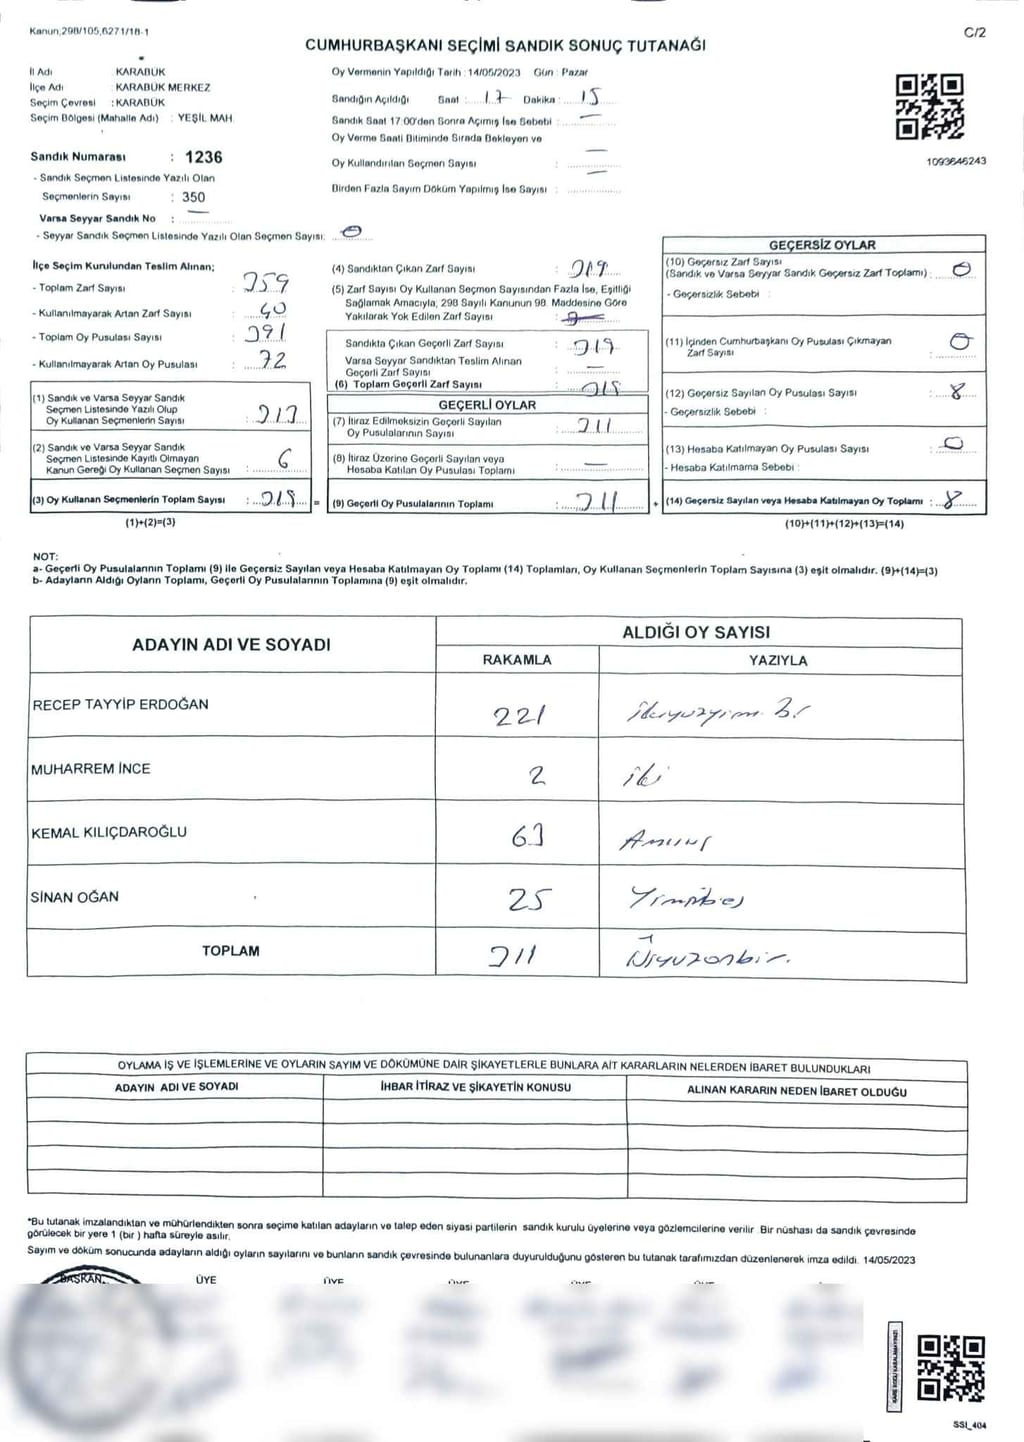 Kanun,298/105,6271/18-1
C/2
CUMHURBAŞKANI SEÇİMİ SANDIK SONUÇ TUTANAĞI
İl Adı : KARABÜK
İlçe Adı : KARABÜK MERKEZ
Seçim Çevresi : KARABÜK
Seçim Bölgesi (Mahalle Adı) : YEŞİL MAH.
Oy Vermenin Yapıldığı Tarih : 14/05/2023 Gün : Pazar
Sandığın Açıldığı Saat : 17 Dakika : 15
Sandık Saat 17:00'den Sonra Açımış İse Sebebi : —
Oy Verme Saati Bitiminde Sırada Bekleyen ve
Oy Kullandırılan Seçmen Sayısı : —
Birden Fazla Sayım Döküm Yapılmış İse Sayısı : —
1093646243
Sandık Numarası : 1236
- Sandık Seçmen Listesinde Yazılı Olan
Seçmenlerin Sayısı : 350
Varsa Seyyar Sandık No : —
- Seyyar Sandık Seçmen Listesinde Yazılı Olan Seçmen Sayısı: 0
İlçe Seçim Kurulundan Teslim Alınan;
- Toplam Zarf Sayısı : 359
- Kullanılmayarak Artan Zarf Sayısı : 40
- Toplam Oy Pusulası Sayısı : 391
- Kullanılmayarak Artan Oy Pusulası : 72
(1) Sandık ve Varsa Seyyar Sandık
Seçmen Listesinde Yazılı Olup
Oy Kullanan Seçmenlerin Sayısı : 313
(2) Sandık ve Varsa Seyyar Sandık
Seçmen Listesinde Kayıtlı Olmayan
Kanun Gereği Oy Kullanan Seçmen Sayısı : 6
(3) Oy Kullanan Seçmenlerin Toplam Sayısı : 319 =
(1)+(2)=(3)
(4) Sandıktan Çıkan Zarf Sayısı : 319
(5) Zarf Sayısı Oy Kullanan Seçmen Sayısından Fazla İse, Eşitliği
Sağlamak Amacıyla, 298 Sayılı Kanunun 98. Maddesine Göre
Yakılarak Yok Edilen Zarf Sayısı :
Sandıkta Çıkan Geçerli Zarf Sayısı : 319
Varsa Seyyar Sandıktan Teslim Alınan
Geçerli Zarf Sayısı : —
(6) Toplam Geçerli Zarf Sayısı : 319
GEÇERLİ OYLAR
(7) İtiraz Edilmeksizin Geçerli Sayılan
Oy Pusulalarının Sayısı : 311
(8) İtiraz Üzerine Geçerli Sayılan veya
Hesaba Katılan Oy Pusulası Toplamı : —
(9) Geçerli Oy Pusulalarının Toplamı : 311 +
GEÇERSİZ OYLAR
(10) Geçersiz Zarf Sayısı
(Sandık ve Varsa Seyyar Sandık Geçersiz Zarf Toplamı) : 0
- Geçersizlik Sebebi :
(11) İçinden Cumhurbaşkanı Oy Pusulası Çıkmayan
Zarf Sayısı : 0
(12) Geçersiz Sayılan Oy Pusulası Sayısı : 8
- Geçersizlik Sebebi :
(13) Hesaba Katılmayan Oy Pusulası Sayısı : 0
- Hesaba Katılmama Sebebi :
(14) Geçersiz Sayılan veya Hesaba Katılmayan Oy Toplamı : 8
(10)+(11)+(12)+(13)=(14)
NOT:
a- Geçerli Oy Pusulalarının Toplamı (9) ile Geçersiz Sayılan veya Hesaba Katılmayan Oy Toplamı (14) Toplamları, Oy Kullanan Seçmenlerin Toplam Sayısına (3) eşit olmalıdır. (9)+(14)=(3)
b- Adayların Aldığı Oyların Toplamı, Geçerli Oy Pusulalarının Toplamına (9) eşit olmalıdır.
ADAYIN ADI VE SOYADI
ALDIĞI OY SAYISI
RAKAMLA YAZIYLA
RECEP TAYYİP ERDOĞAN 221 ikiyüzyirmi Bir
MUHARREM İNCE 2 iki
KEMAL KILIÇDAROĞLU 63 Altmışüç
SİNAN OĞAN 25 Yirmibeş
TOPLAM 311 Üçyüzonbir.
OYLAMA İŞ VE İŞLEMLERİNE VE OYLARIN SAYIM VE DÖKÜMÜNE DAİR ŞİKAYETLERLE BUNLARA AİT KARARLARIN NELERDEN İBARET BULUNDUKLARI
ADAYIN ADI VE SOYADI İHBAR İTİRAZ VE ŞİKAYETİN KONUSU ALINAN KARARIN NEDEN İBARET OLDUĞU
*Bu tutanak imzalandıktan ve mühürlendikten sonra seçime katılan adayların ve talep eden siyasi partilerin sandık kurulu üyelerine veya gözlemcilerine verilir. Bir nüshası da sandık çevresinde
görülecek bir yere 1 (bir ) hafta süreyle asılır.
Sayım ve döküm sonucunda adayların aldığı oyların sayılarını ve bunların sandık çevresinde bulunanlara duyurulduğunu gösteren bu tutanak tarafımızdan düzenlenerek imza edildi. 14/05/2023
BAŞKAN ÜYE ÜYE ÜYE ÜYE ÜYE ÜYE
KARE KODU KARALAMAYINIZ!
SSI_404